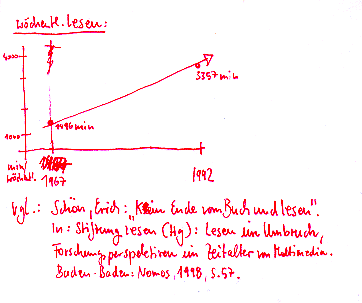 wöchentl. lesen:
4000
3357 min
1496 min
1000
min/
wöchentl.
1967
1992
Vgl.: Schön, Erich: "Kein Ende vom Buch und Lesen".
In: Stiftung Lesen (Hg): Lesen im Umbruch,
Forschungsperspektiven im Zeitalter von Multimedia.
Baden-Baden: Nomos, 1998, S. 57.